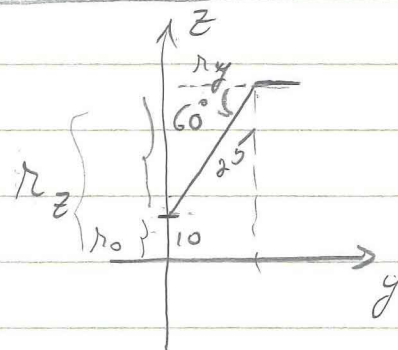 z
r_y
60°
25
r_z
r_0
10
y